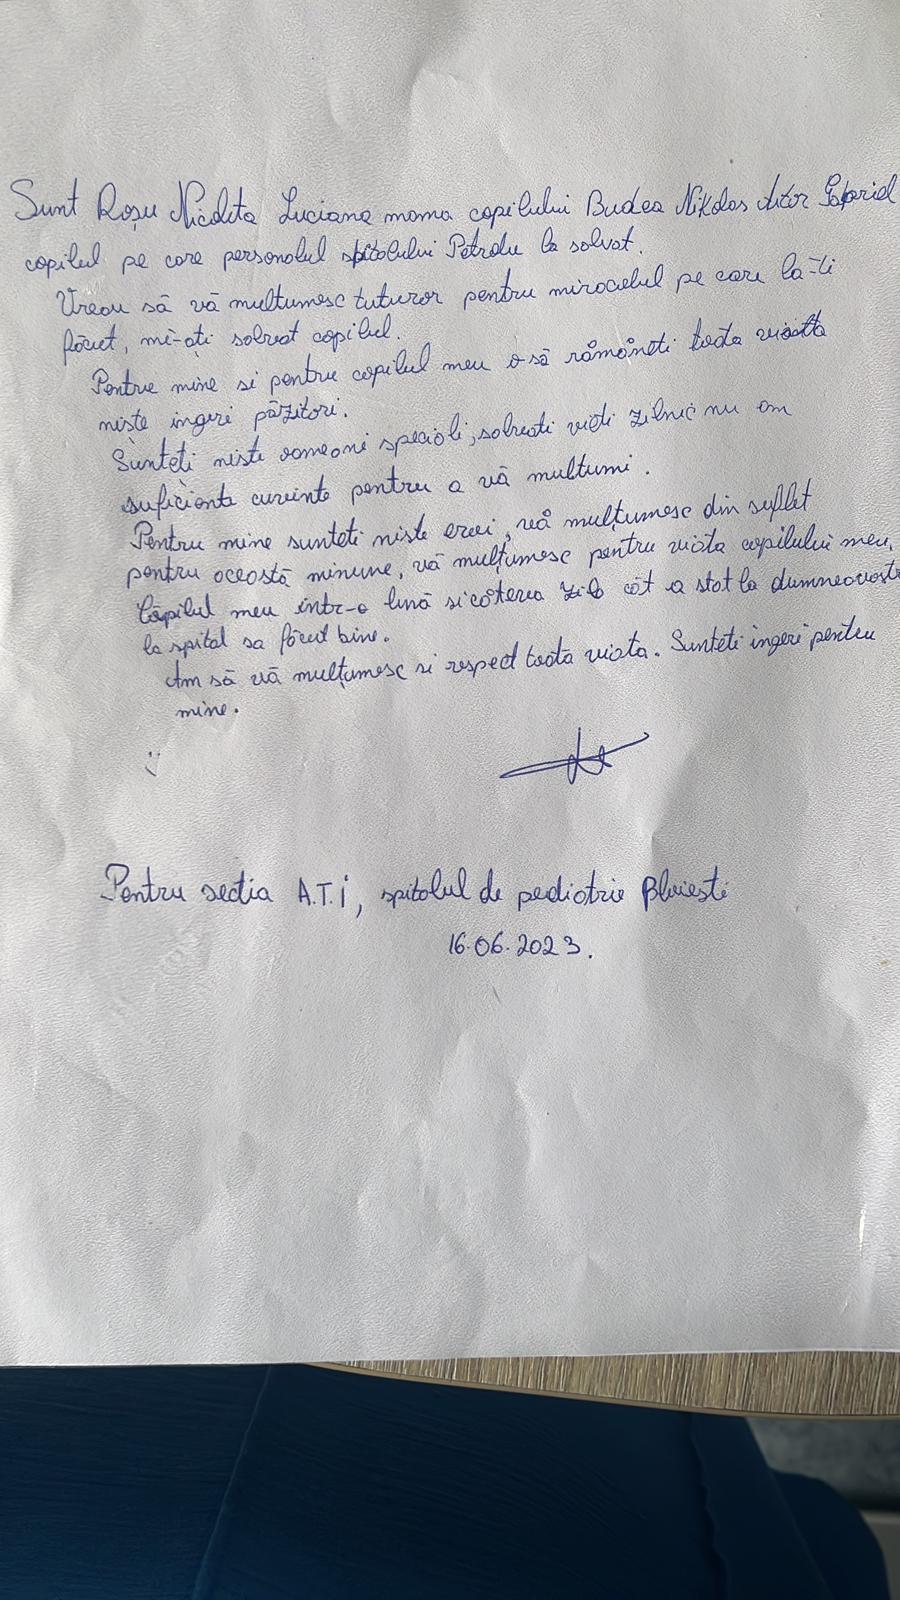 Sunt Roșu Nicoleta Luciana mama copilului Budea Nikolas Aitor Gabriel
copilul pe care personalul spitalului Petrolu la salvat.
Vreau să vă multumesc tuturor pentru miracolul pe care la-ti
făcut, mi-ați salvat copilul.
Pentru mine si pentru copilul meu o să rămâneti toata viata
niște ingeri păzitori.
Sunteti niste oameoni speciali, salvati vieti zilnic nu am
suficiente cuvinte pentru a vă multumi.
Pentru mine sunteti niste eroi, vă mulțumesc din suflet
pentru această minune, vă mulțumesc pentru viata copilului meu.
Copilul meu intr-o lună si câteva zile cât a stat la dumneavoastr
la spital sa făcut bine.
Am să vă mulțumesc si respect toata viata. Sunteti ingeri pentru
mine.
:)
Pentru sectia A.T.I, spitalul de pediatrie Ploiesti
16.06.2023.